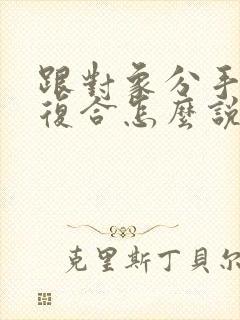 跟對象分手
復合怎麼說
克里斯丁貝尔